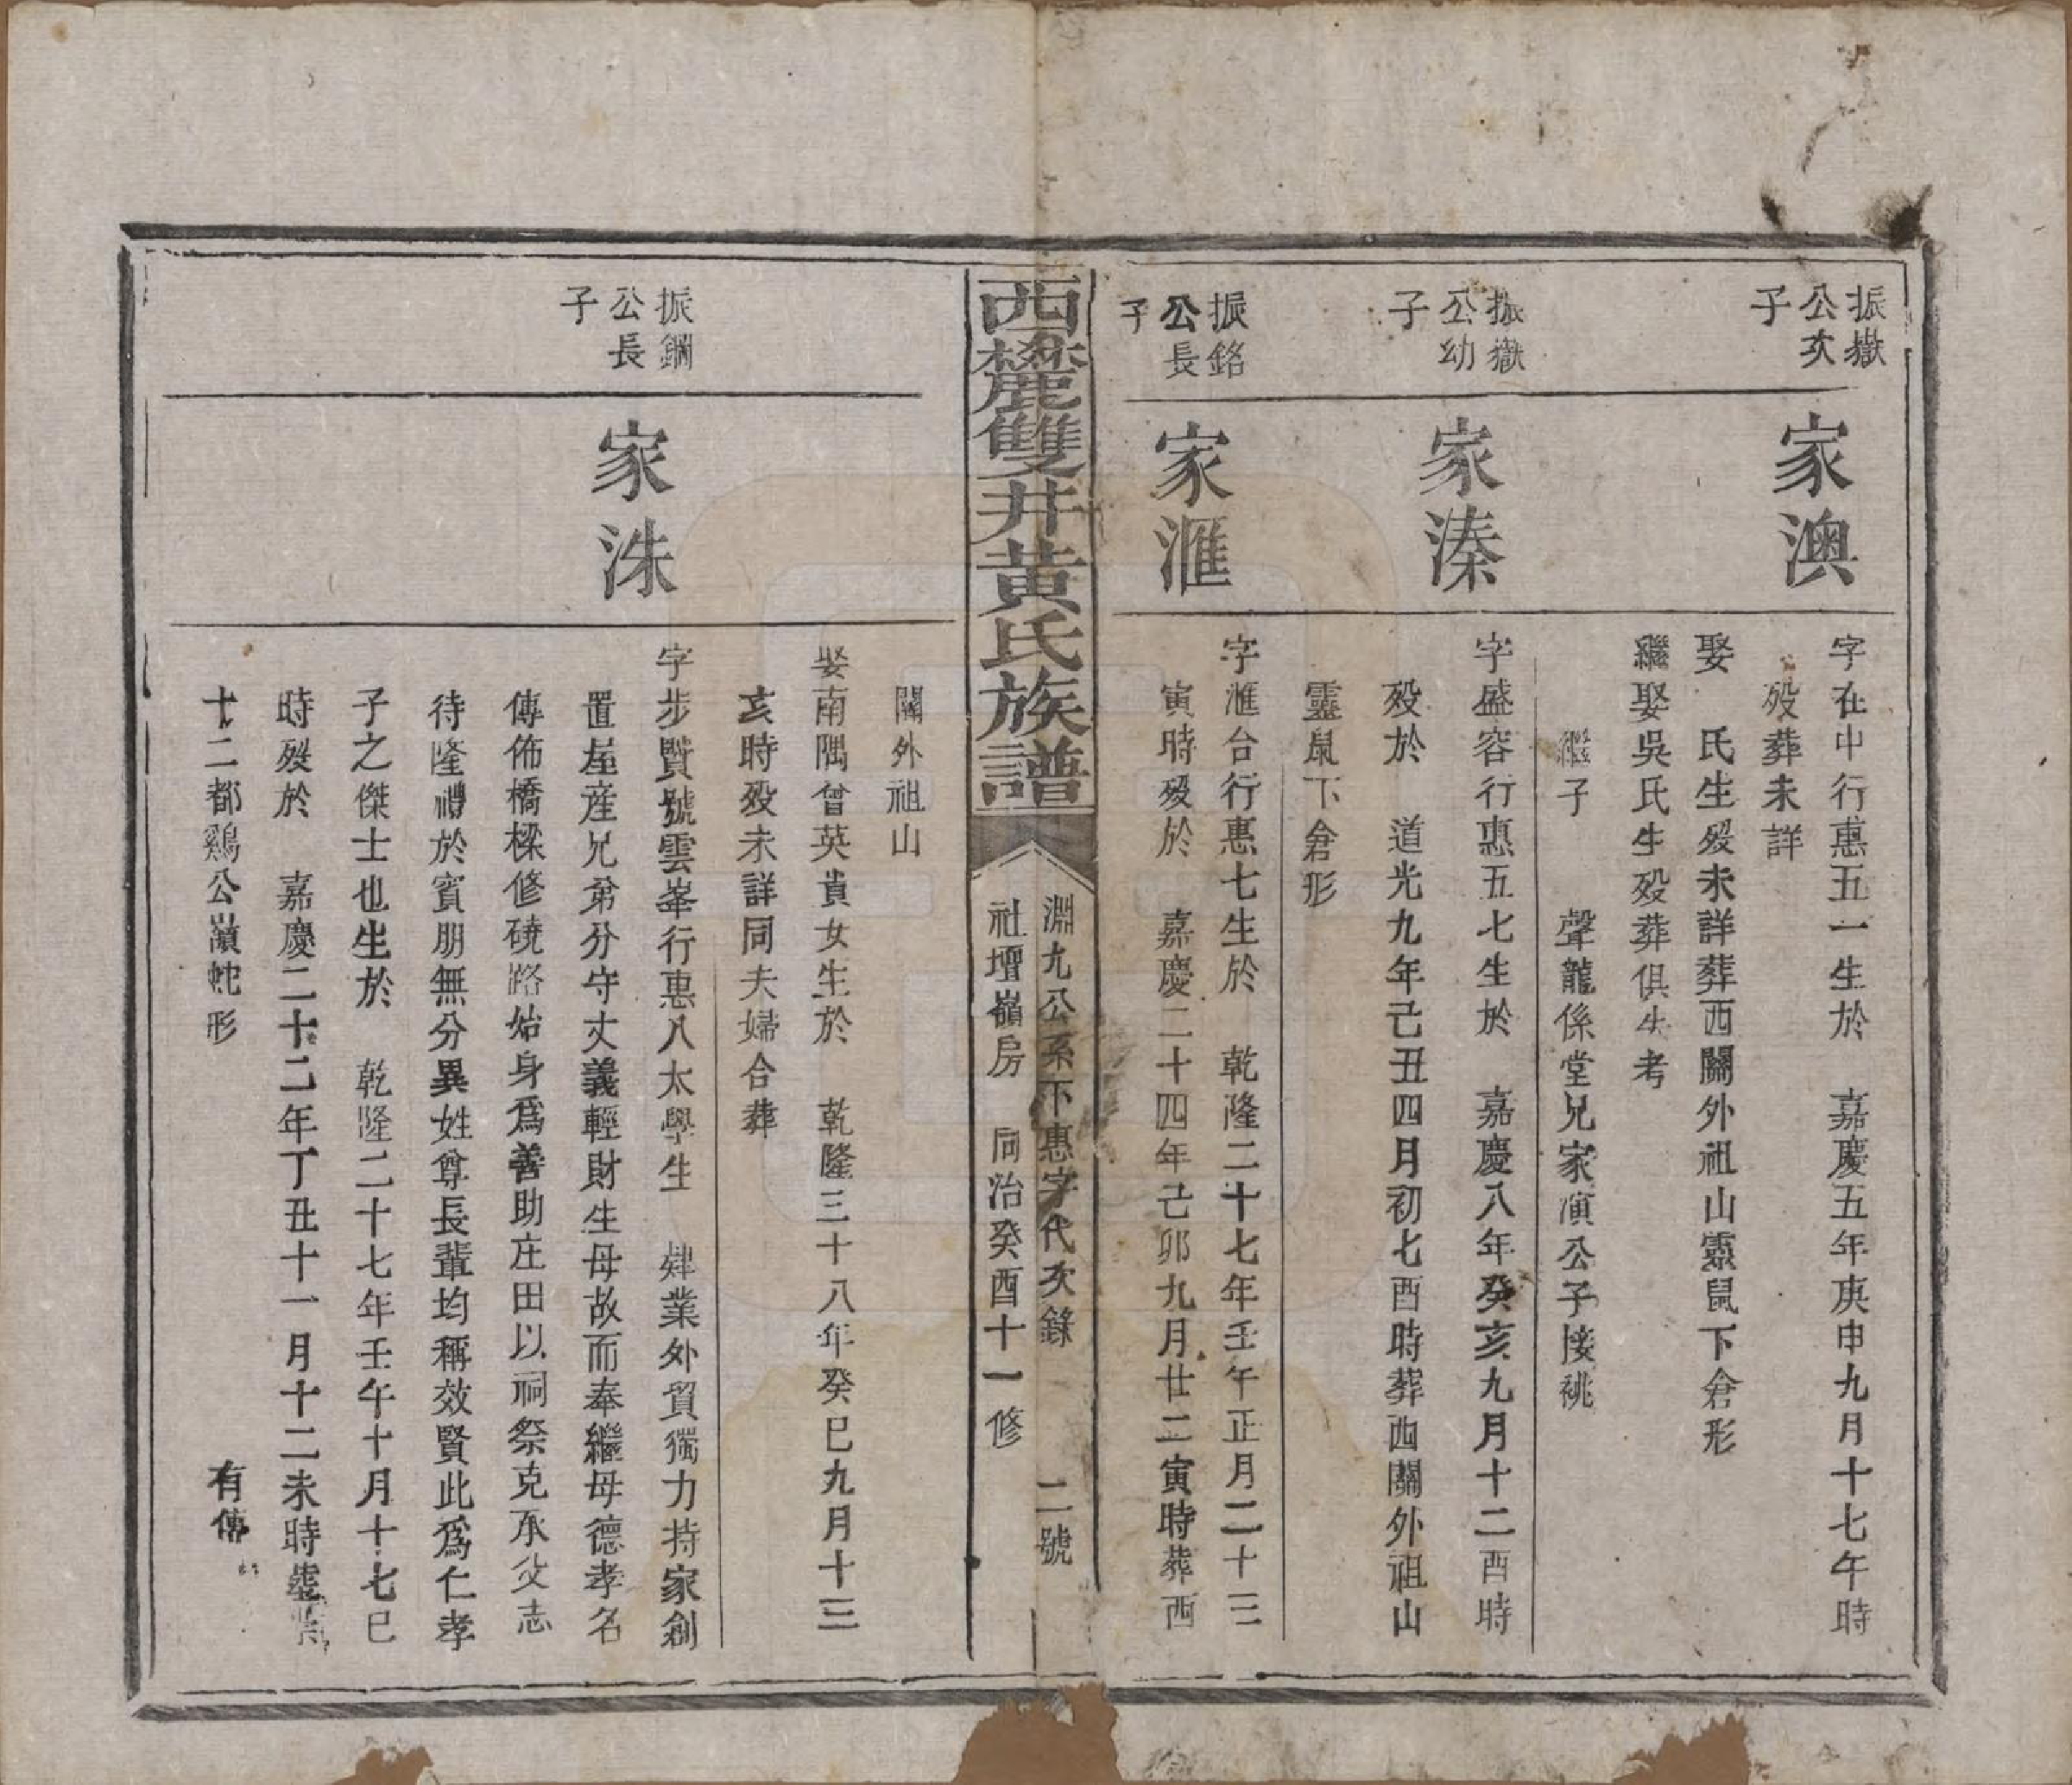 振嶽
公次
子
家澳
字在中行惠五一生於 嘉慶五年庚申九月十七午時
歿葬未詳
娶 氏生歿未詳葬西關外祖山靈鼠下倉形
繼娶吳氏生歿葬俱失考
繼子 聲龍係堂兄家演公子接祧
振嶽
公幼
子
家溱
字盛容行惠五七生於 嘉慶八年癸亥九月十二酉時
歿於 道光九年己丑四月初七酉時葬西關外祖山
靈鼠下倉形
振銘
公長
子
家滙
字滙台行惠七生於 乾隆二十七年壬午正月二十三
寅時歿於 嘉慶二十四年己卯九月廿二寅時葬西
西麓雙井黃氏族譜
淵九公系下惠字代次錄 二號
社壇嶺房 同治癸酉十一修
關外祖山
娶南隅曾英貴女生於 乾隆三十八年癸巳九月十三
亥時歿未詳同夫婦合葬
振鋼
公長
子
家洙
字步賢號雲峯行惠八太學生 肄業外貿獨力持家創
置屋産兄弟分守丈義輕財生母故而奉繼母德孝名
傳佈橋樑修磽路始身爲善助庄田以祠祭克承父志
待隆禮於賓朋無分異姓尊長輩均稱效賢此爲仁孝
子之傑士也生於 乾隆二十七年壬午十月十七巳
時歿於 嘉慶二十二年丁丑十一月十二未時
十二都鷄公嶺蛇形 有傳